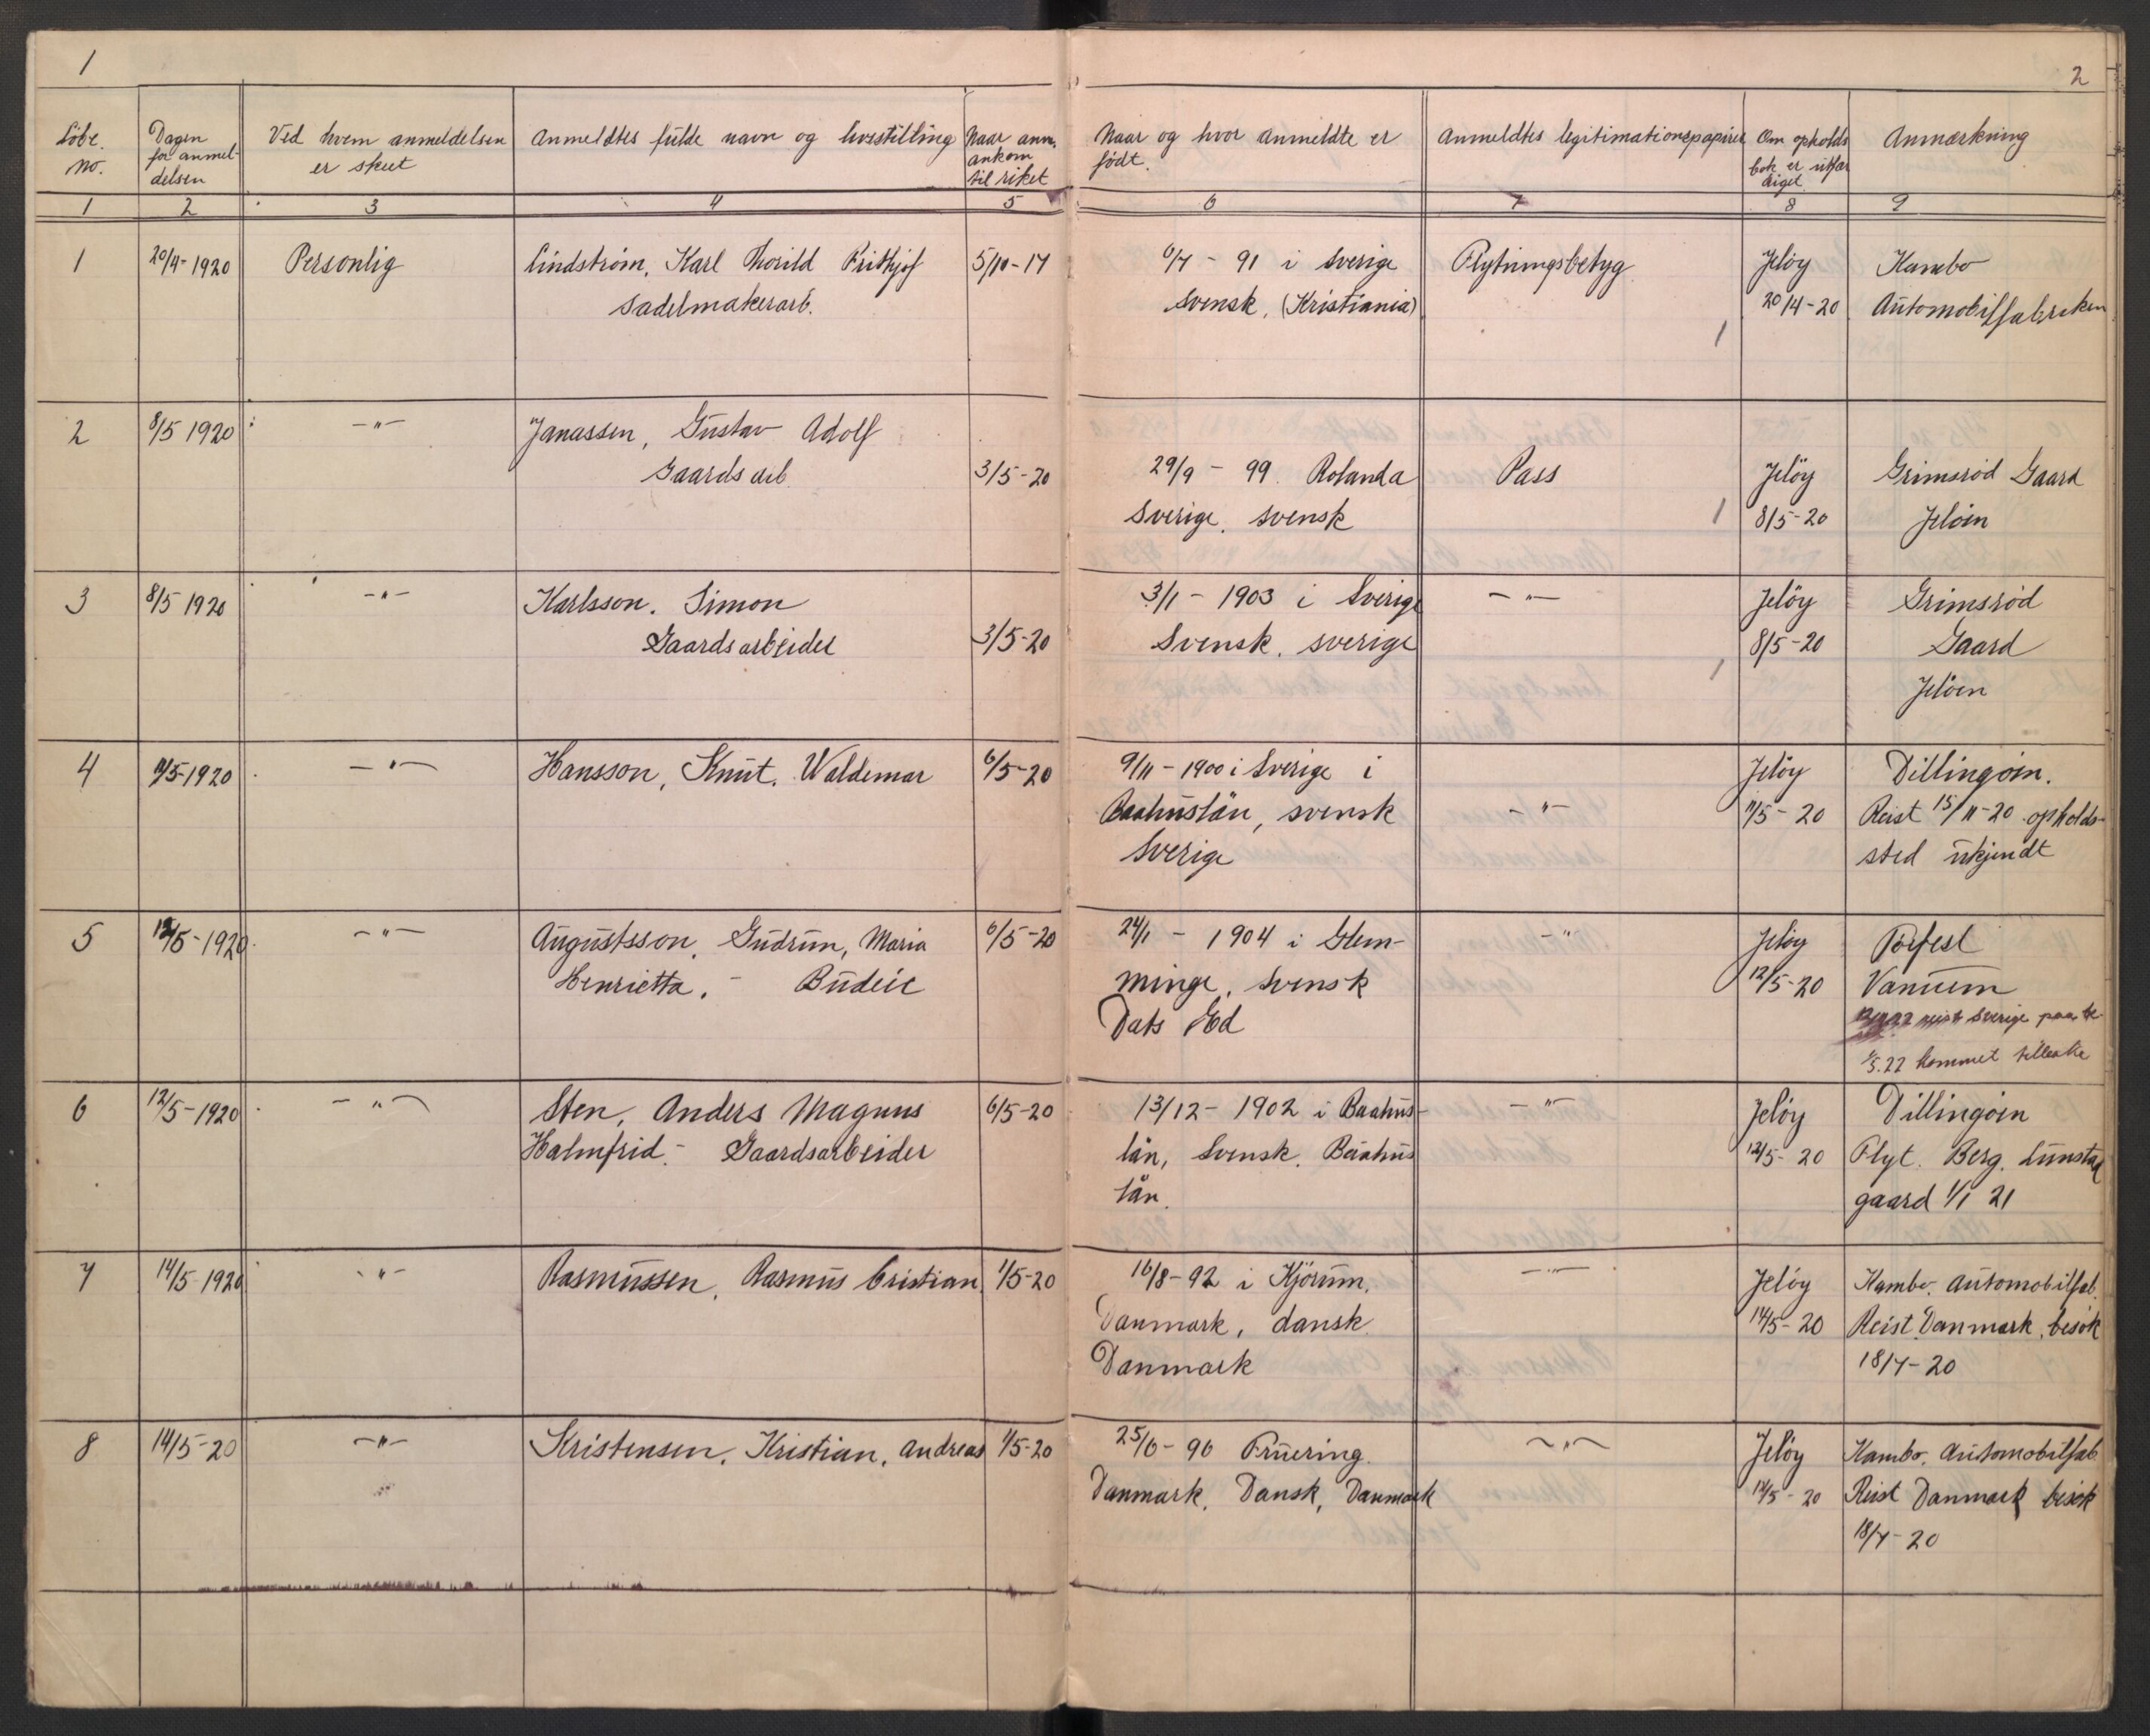 1
2
Löbe. no.
Dagen for anmeldelsen
Ved hvem anmeldelsen er skeet
Anmeldtes fulde navn og livsstilling
Naar anm. ankom til riket
Naar og hvor anmeldte er født.
Anmeldtes legitimationspapirer
Om opholdsbok er utfærdiget
Anmærkning
1 2 3 4 5 6 7 8 9
1 20/4-1920 Personlig Lindstrøm, Karl Thorild Frithjof 5/10-17 6/7 - 91 i Sverige Flytningsbetyg Jeløy Kambo
Sadelmakerarb. svensk, (Kristiania) 20/4-20 Automobilfabrikken
1
2 8/5 1920 -"- Janassen, Gustav Adolf
Gaardsarb. 3/5-20 29/9 - 99. Rolanda Pass Jeløy Grimsrød Gaard
Sverige. svensk 1 8/5-20 Jeløen
3 8/5 1920 -"- Karlsson. Simon 3/1 - 1903 i Sverige -"- Jeløy Grimsrød
Gaardsarbeider 3/5-20 Svensk. sverige 8/5-20 Gaard
1 Jeløen
4 11/5-1920 -"- Hansson, Knut. Waldemar 6/5-20 9/11-1900 i Sverige i Jeløy Dillingøen.
Baahuslän, svensk -"- 11/5-20 Reist 15/11-20 opholds-
Sverige sted ukjendt
5 12/5-1920 -"- Augustsson, Gudrun, Maria 6/5-20 24/1 - 1904 i Glem- -"- Jeløy Torfest
Henrietta. - Budeie minge, svensk 12/5-20 Vanem
Dals Ed reist Sverige
5.22 kommet tilbake
6 12/5-1920 -"- Sten, Anders Magnus 6/5-20 13/12-1902 i Baahus- -"- Jeløy Dillingøen
Halmfrid - Gaardsarbeider län, Svensk. Baahus 12/5-20 Flyt. Berg. Lunstad
län. gaard 1/1 21
7 14/5-1920 -"- Rasmussen, Rasmus Cristian. 1/5-20 16/8-92 i Kjørum. -"- Jeløy Kambo. Automobilfab.
Danmark, dansk 14/5-20 Reist Danmark, besøk
Danmark 18/7-20
8 14/5-20 -"- Kristensen, Kristian, Andreas 1/5-20 25/6-96 Fruering. -"- Jeløy Kambo. Automobilfab.
Danmark, Dansk, Danmark 14/5-20 Reist Danmark besøk
18/7-20